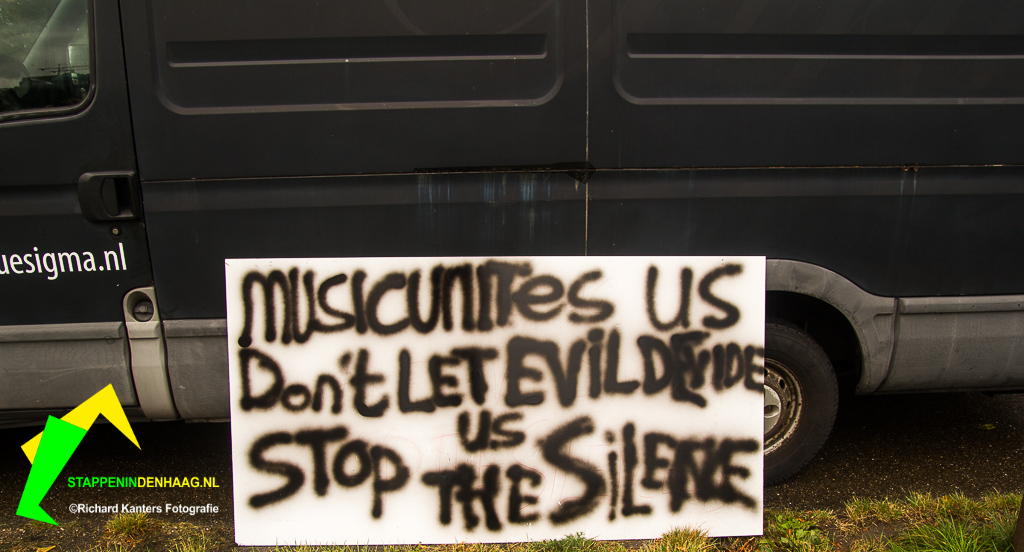 uesigma.nl
MUSICUNITes US
Don't LET EVIL DEVIDE
US
STOP THE SILENCE
STAPPENINDENHAAG.NL
©Richard Kanters Fotografie